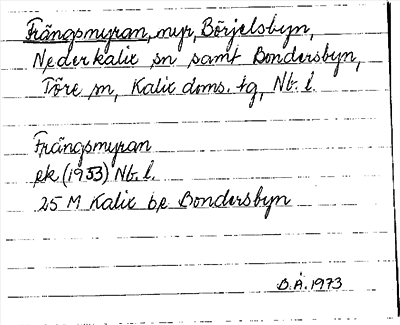 Frängsmyran, myr, Börjelsbyn,
Nederkalix sn samt Bondersbyn,
Töre sn, Kalix doms. tg, Nb. l.
Frängsmyran
ek (1953) Nb. l.
25 M Kalix be Bondersbyn
B.Å. 1973